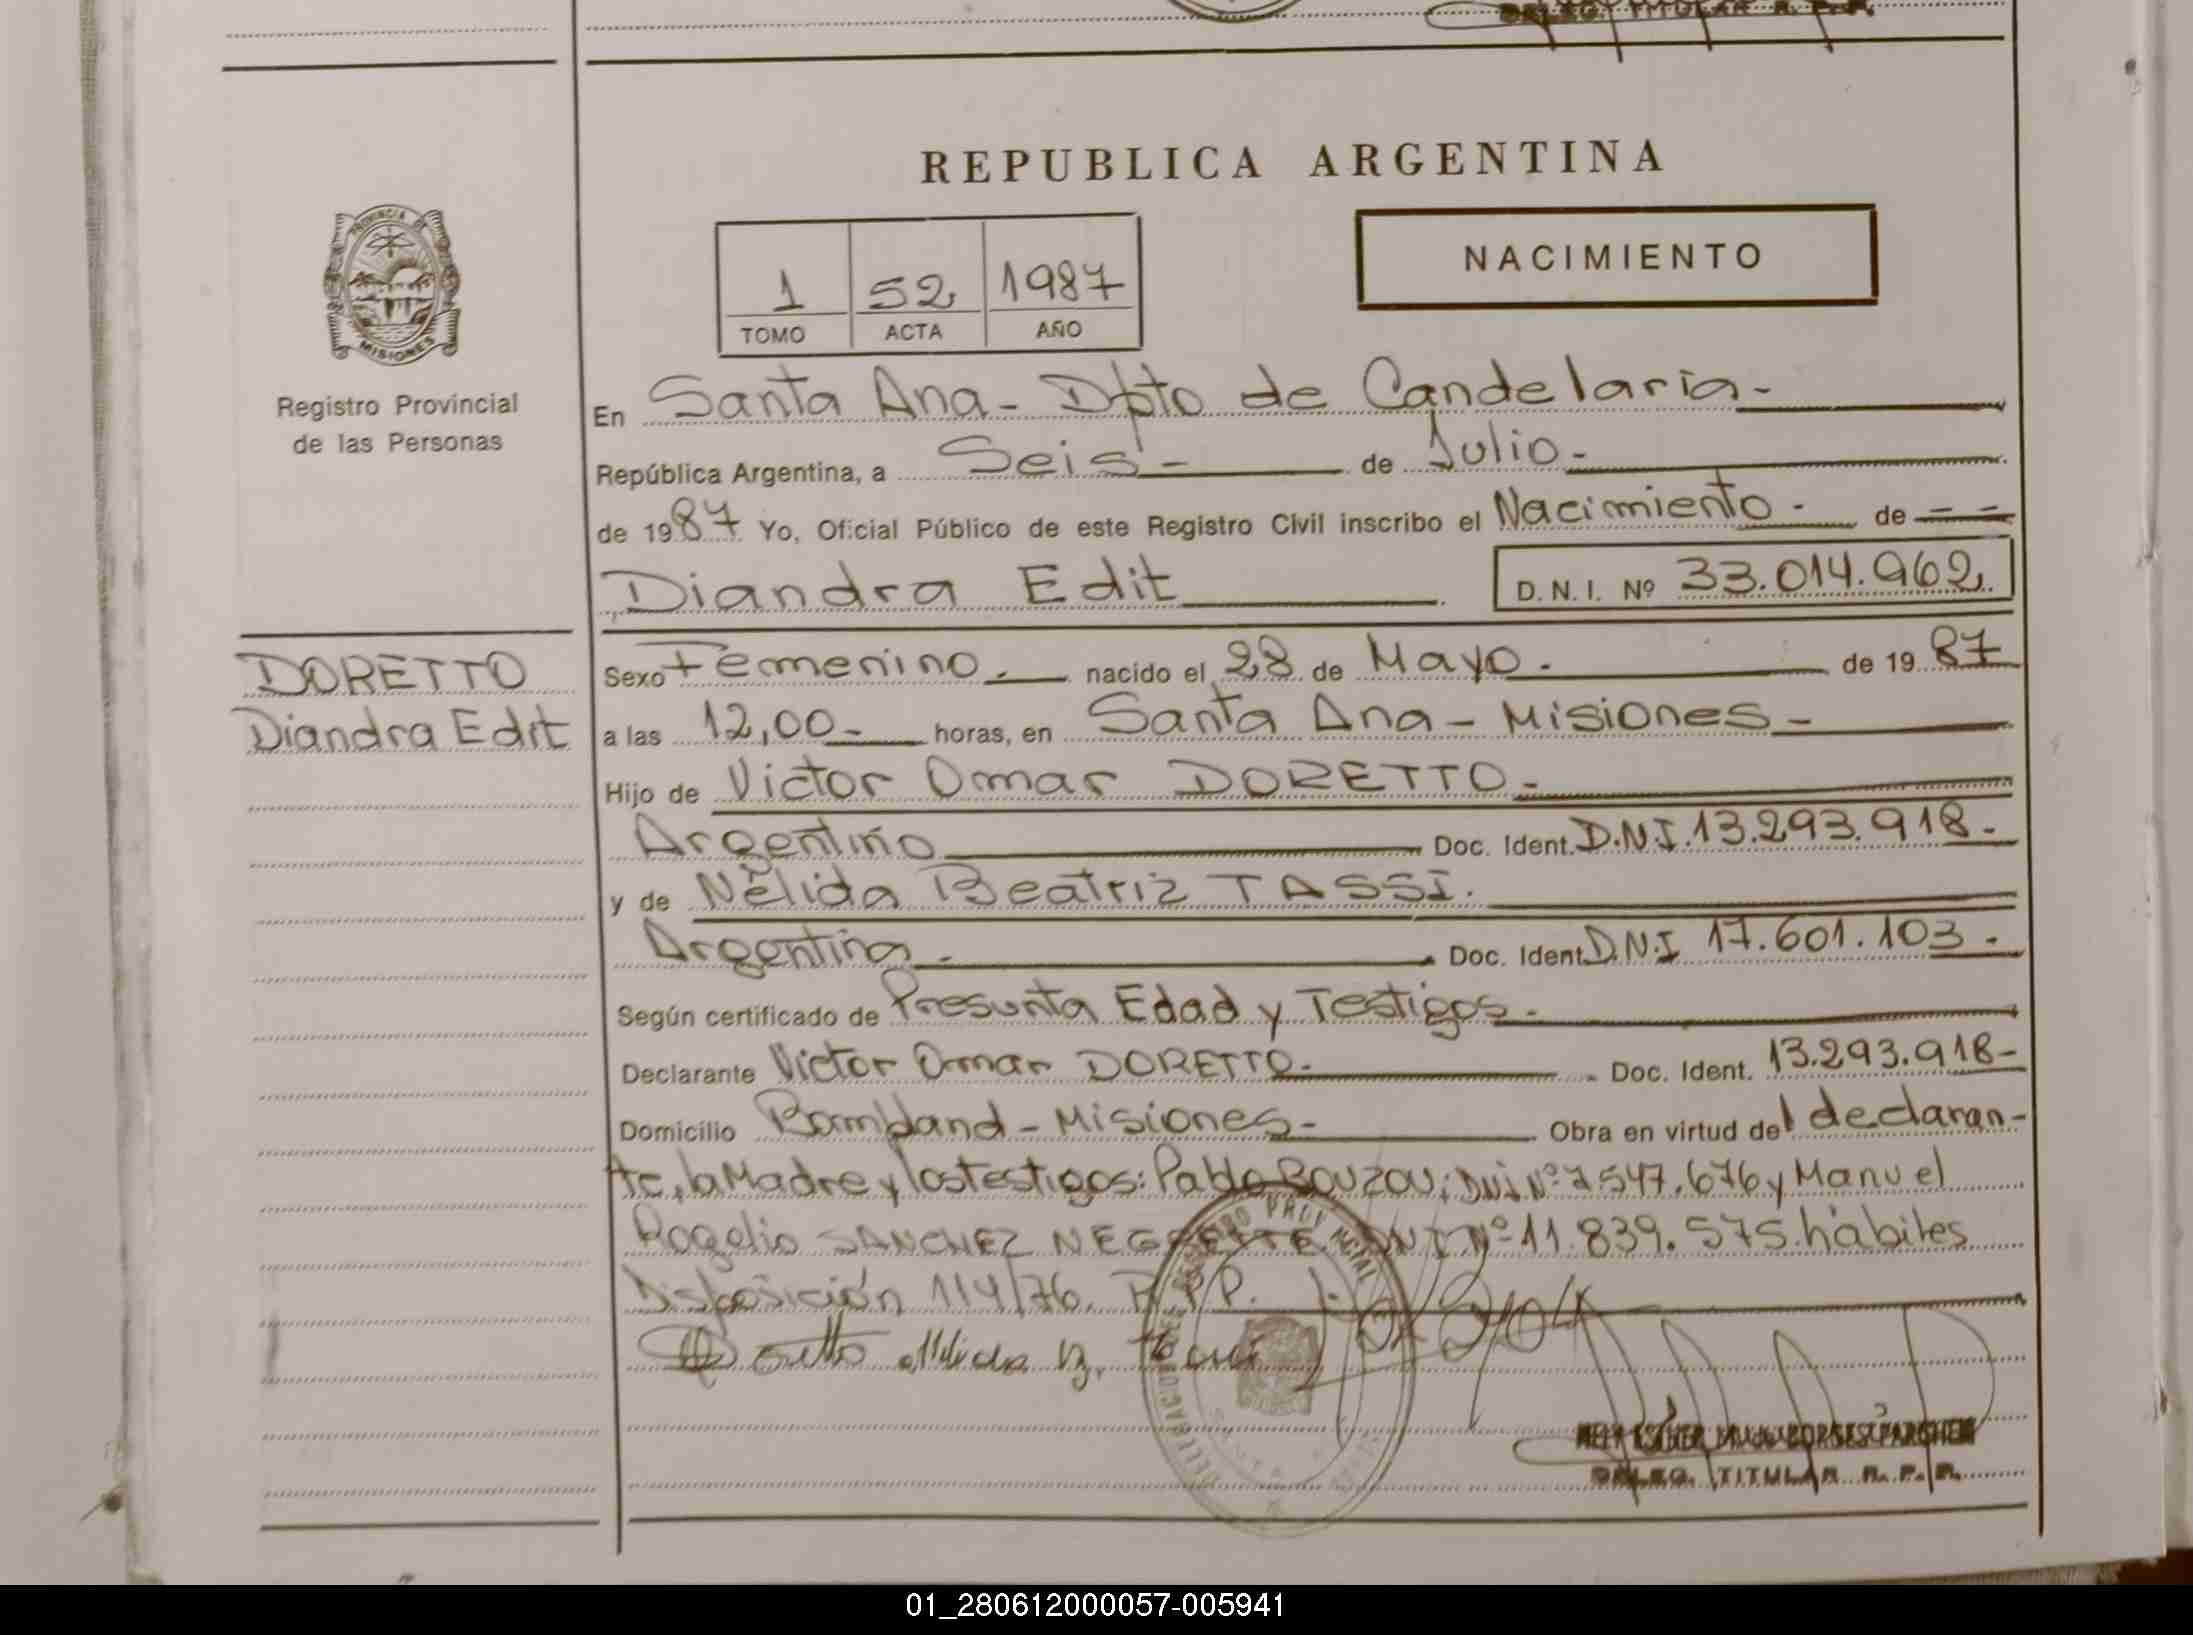 DELEG. TITULAR R. P. P.
REPUBLICA ARGENTINA
PROVINCIA DE
MISIONES
Registro Provincial
de las Personas
1 52 1987
TOMO ACTA AÑO
NACIMIENTO
En Santa Ana - Dpto de Candelaria -
República Argentina, a Seis - de Julio -
de 1987 Yo, Oficial Público de este Registro Civil inscribo el Nacimiento - de - -
Diandra Edit D. N. I. Nº 33.014.962
DORETTO
Diandra Edit
Sexo Femenino. nacido el 28 de Mayo. de 1987
a las 12,00 - horas, en Santa Ana - Misiones -
Hijo de Victor Omar DORETTO -
Argentino Doc. Ident. D.N.I. 13.293.918 -
y de Nélida Beatriz TASSI.
Argentina - Doc. Ident. D.N.I 17.601.103 -
Según certificado de Presunta Edad y Testigos -
Declarante Victor Omar DORETTO - Doc. Ident. 13.293.918 -
Domicilio Bompland - Misiones - Obra en virtud del declaran-
te, la Madre y los testigos: Pablo BOUZOU; DNI Nº 7 547.676 y Manuel
Rogelio SANCHEZ NEGRETTE DNI Nº 11.839.575 hábiles
Disposición 114/76. R.P.P.
REGISTRO PROVINCIAL
DELEGACION
SANTA
DELEG. TITULAR R. P. P.
01_280612000057-005941